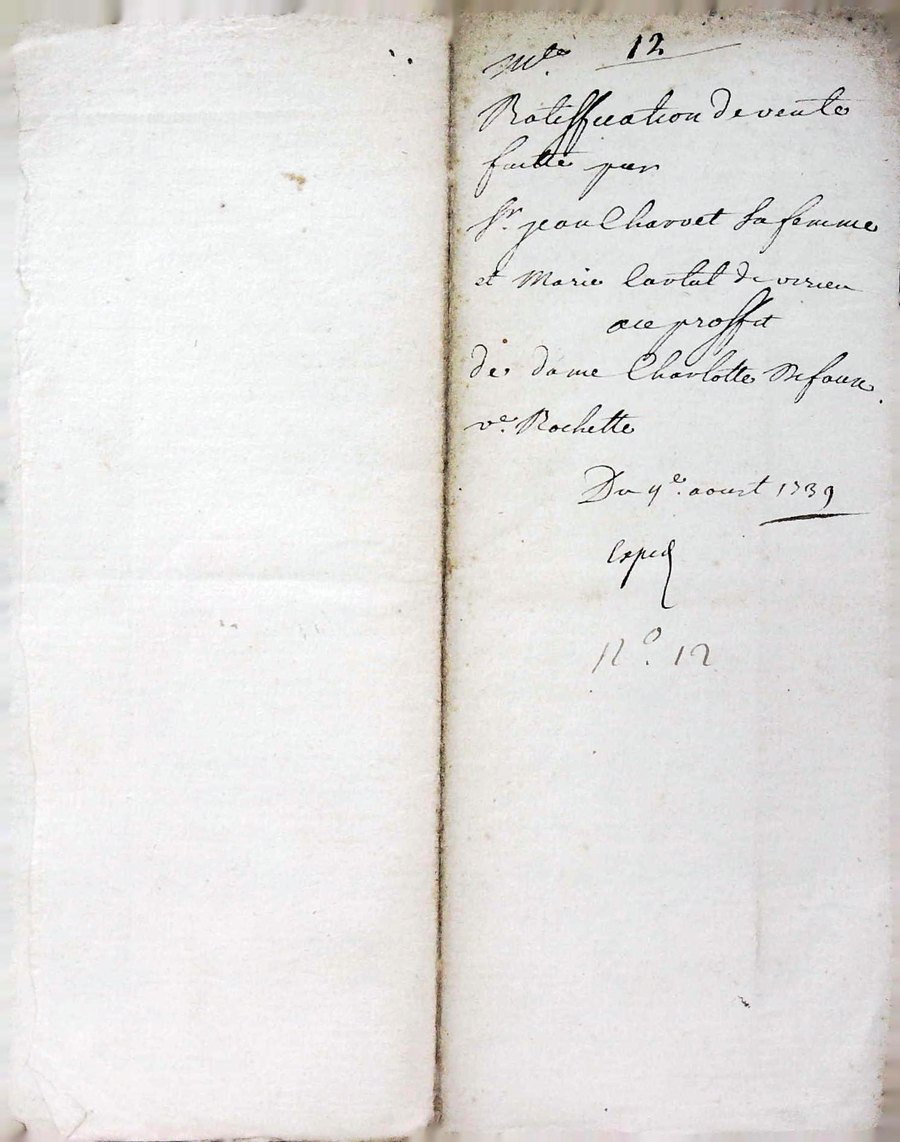 12
Ratiffication de vente
faitte par
Sr. jean Charvet Sa femme
et Marie Cantal de virieu
au proffit
de dame Charlotte
ve. Rochette
Du 9e. aoust 1739
Exped
No. 12